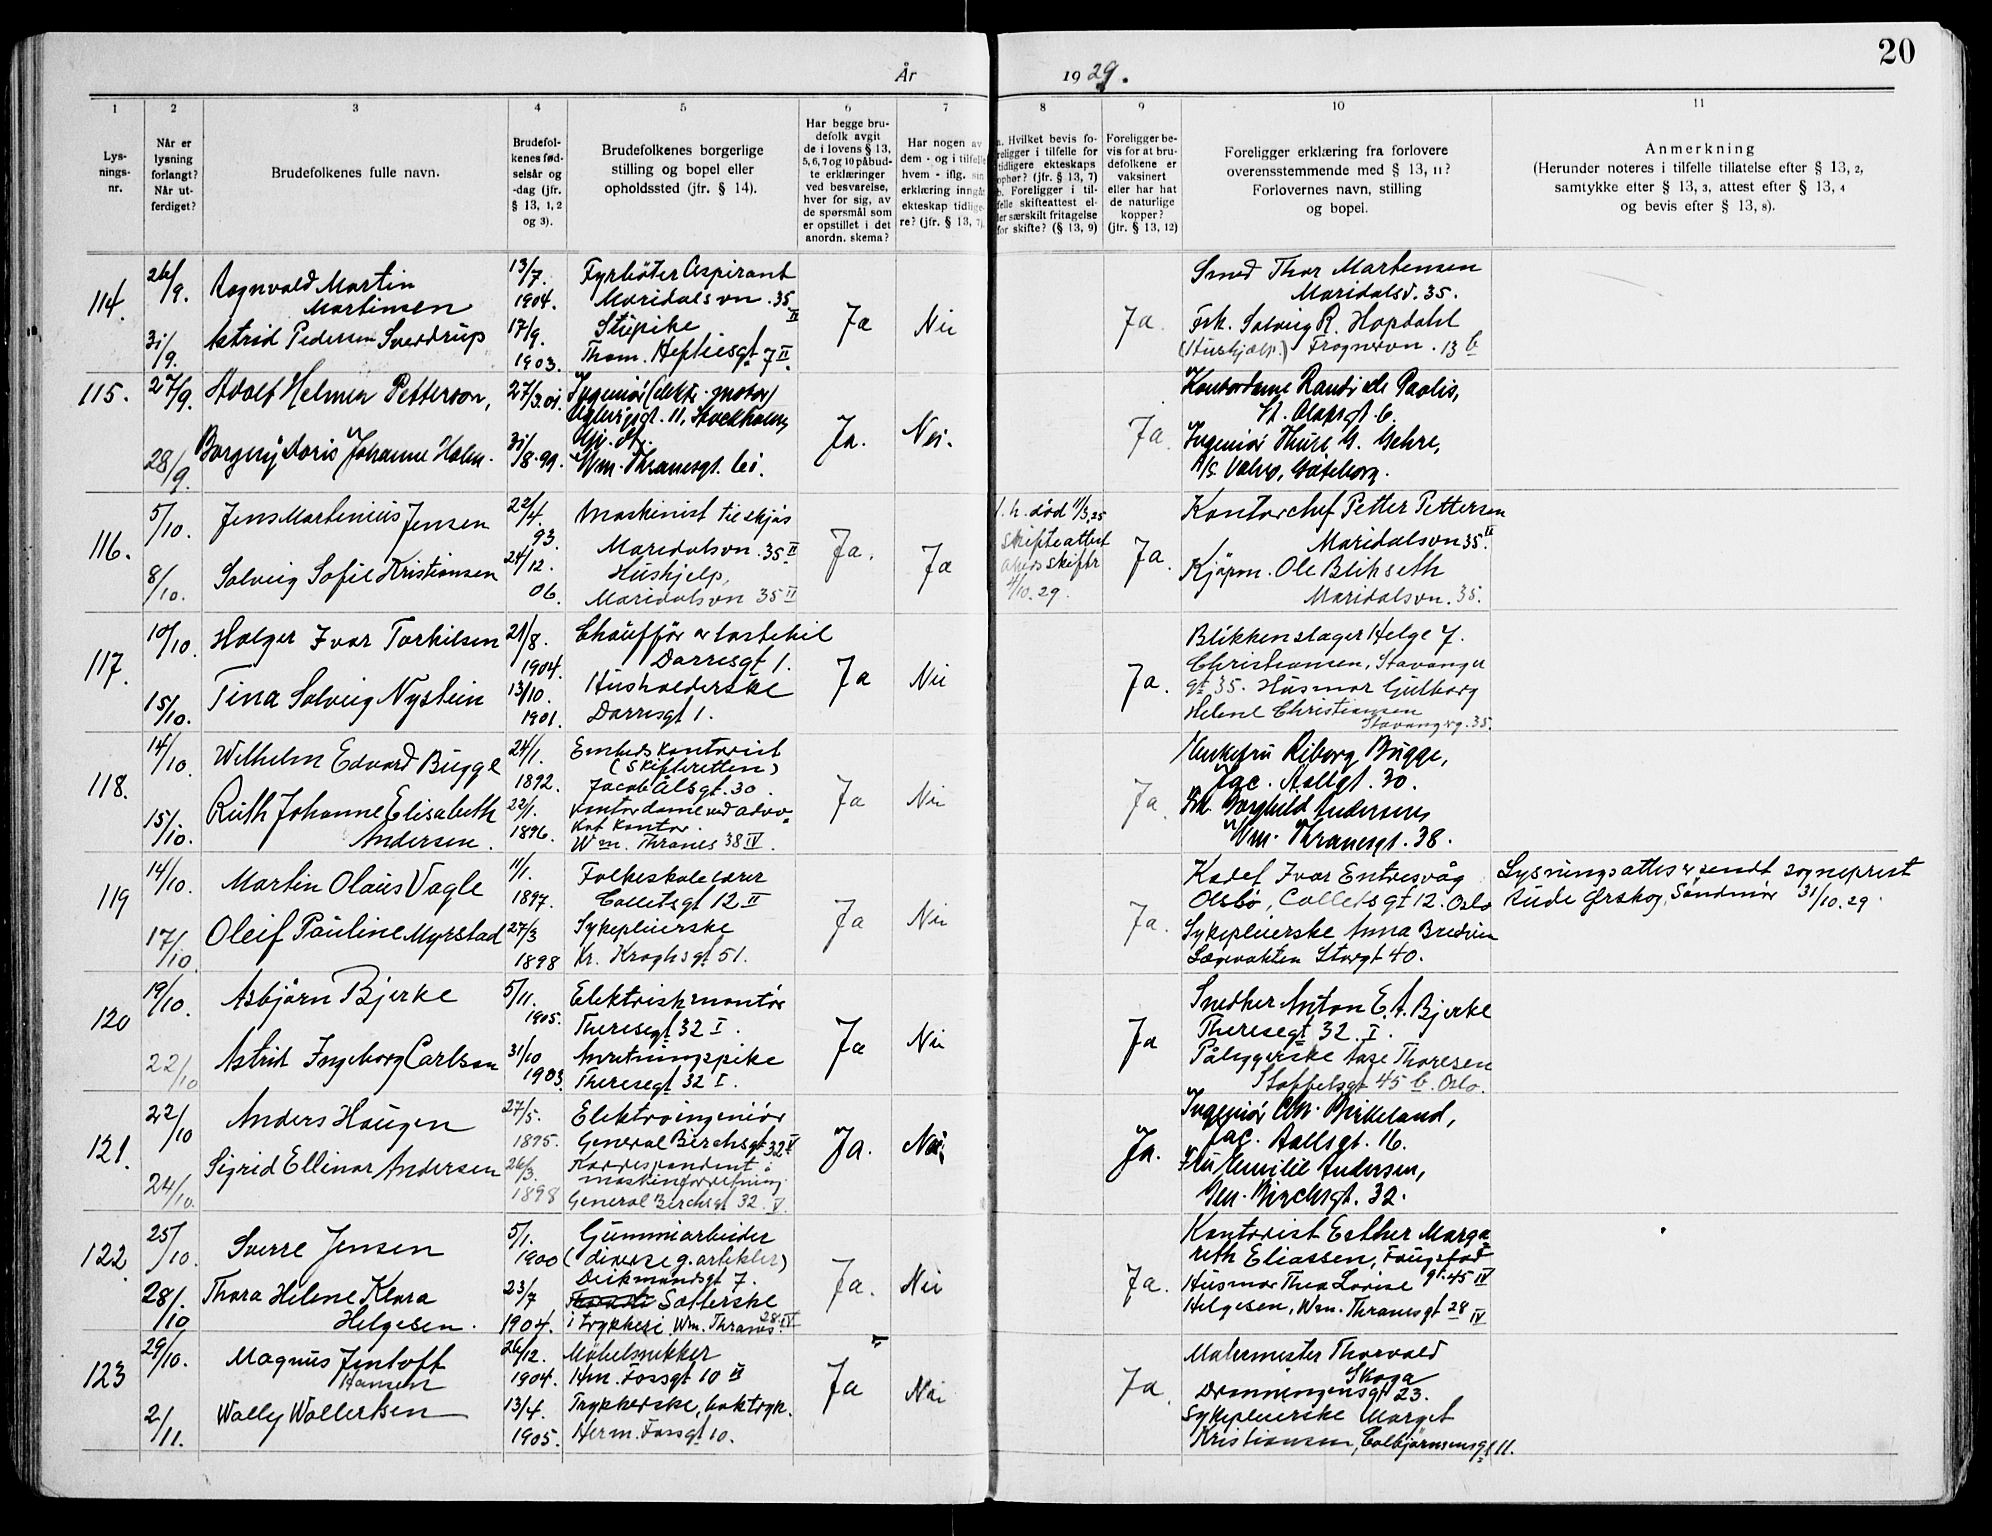 20
År 1929.
1 2 3 4 5 6 7 8 9 10 11
Lys-
nings-
nr.
Når er
lysning
forlangt?
Når ut-
ferdiget?
Brudefolkenes fulle navn.
Brudefol-
kenes fød-
selsår og
-dag (jfr.
§ 13, 1, 2
og 3).
Brudefolkenes borgerlige
stilling og bopel eller
opholdssted (jfr. § 14).
Har begge bru-
defolk avgit
de i lovens § 13,
5, 6, 7 og 10 påbud-
te erklæringer
ved besvarelse,
hver for sig, av
de spørsmål som
er opstillet i det
anordn. skema?
Har nogen av
dem - og i tilfelle
hvem - iflg. sin
erklæring inngåt
ekteskap tidlige-
re? (jfr. § 13, 7)
a. Hvilket bevis fo-
religger i tilfelle for
tidligere ekteskaps
ophør? (jfr. § 13, 7)
b. Foreligger i til-
felle skifteattest el-
ler særskilt fritagelse
for skifte? (§ 13, 9)
Foreligger be-
vis for at bru-
defolkene er
vaksinert
eller har hat
de naturlige
kopper?
(jfr. § 13, 12)
Foreligger erklæring fra forlovere
overensstemmende med § 13, 11?
Forlovernes navn, stilling
og bopel.
Anmerkning
(Herunder noteres i tilfelle tillatelse efter § 13, 2,
samtykke efter § 13, 3, attest efter § 13, 4
og bevis efter § 13, 8).
114.
26/9.
31/9.
Rognvald Martin
Martinsen
Astrid Pedersen Sverdrup
13/7.
1904.
17/9.
1903.
Fyrbøter Aspirant
Maridalsvn. 35 II
Stuepike
Thom. Heftiesgt 7 II.
Ja
Nei
Ja.
Smed Thor Martensen
Maridalsv. 35.
Frk. Solveig R. Hopdahl
(Hushjælp.) Frognervn. 13 b
115.
27/9.
28/9.
Adolf Helmer Petterson,
Borgny Doris Johanne Holm.
27/3.01.
31/8.99.
Ingeniör (elektr. motor)
11, Stockholm,
Wm. Thranesgt.
Ja.
Nei.
Ja.
Kontordame Randi de Paolis,
St. Olavsgt. 6.
Ingeniör Thure G. Gehre,
A/S. Volvo, Göteborg.
116.
5/10.
8/10.
Jens Martinius Jensen
Solveig Sofie Kristiansen
22/4.
93.
24/12.
06.
Maskinist tilskjøs
Maridalsvn. 35 II
Hushjelp,
Maridalsvn 35 II
Ja.
Ja
f. h. död 11/3.25
Skifteattest
skiftr
4/10.29.
Ja.
Kontorchef Petter Pettersen
Maridalsvn 35 II.
Kjøpm. Ole Blikseth
Maridalsvn. 35.
117.
10/10.
15/10.
Holger Ivar Torkilsen
Tina Solveig Nystein
21/8.
1904.
13/10.
1901.
Chauffør av lastebil
Darresgt 1.
Husholderske
Darresgt 1.
Ja
Nei
Ja.
Blikkenslager Helge J.
Christiansen, Stavanger
gt 35. Husmor Gulborg
Helene Christiansen
Stavangerg. 35.
118.
14/10.
15/10.
Wilhelm Edvard Bugge
Ruth Johanne Elisabeth
Andersen.
24/1.
1892.
22/1.
1896.
Embedskontorist
(Skifteretten)
Jacob Alsgt. 30.
Kontordame ved advo-
kat kontor.
Wm. Thranes 38 IV.
Ja
Nei
Ja.
Enkefru Riborg Bugge,
Jac. Aallgt. 30.
Frk. Borghild Andersen,
Wm. Thranesgt. 38.
119
14/10.
17/10.
Martin Olaus Vagle
Oleif Pauline Myrstad
11/1.
1897.
27/3
1898
Folkeskolelærer
Colletsgt 12 II
Sykepleierske
Kr. Kroghsgt 51.
Ja
Nei
Ja.
Kadet Ivar Entresvåg
Olsbø, Colletsgt 12. Oslo
Sykepleierske Anna Bredvin
Lægevakten Storgt 40.
Lysningsattest sendt sogneprest
Rude Ørskog, Søndmør 31/10.29.
120
19/10.
22/10
Asbjørn Bjerke
Astrid Ingeborg Carlsen
5/11.
1905.
31/10
1903.
Elektriskmontør
Theresegt 32 I.
Anretningspike
Theresegt 32 I.
Ja
Nei
Ja
Snedker Anton E. A. Bjerke
Theresegt 32. I.
Påleggerske Aase Thoresen
Stoffelsgt 45 b. Oslo.
121.
22/10
24/10.
Anders Haugen
Sigrid Ellinor Andersen
27/5.
1895.
26/3.
1898
Elektroingeniør
General Birchsgt 32 V
Korrespondent i
maskinforretning.
General Birchsgt 32. V.
Ja.
Nei.
Ja.
Ingeniør Chr. Birkeland,
Jac. Aallsgt. 16.
Fru Emilie Andersen,
Gen. Birchsgt. 32.
122.
25/10.
28/10
Sverre Jensen
Thora Helene Klara
Helgesen.
5/1.
1900
23/7
1904.
Gummiarbeider
(diverse g. artikler)
Deikmandsgt 7.
Sætterske
i trykkeri. Wm. Thranes 28 IV
Ja.
Nei
Ja.
Kontorist Esther Marga
reth Eliassen, Fougstad
gt. 45 IV
Husmor Thea Lovise
Helgesen, Wm. Thranesgt 28 IV
123
29/10.
2/11.
Magnus Jentoft
Hansen
Wally Wollertsen
26/12.
1904.
13/4.
1905.
Møbelsnekker
Hm. Fossgt 10 II
Trykkerske, boktryk.
Herm. Fossgt 10.
Ja
Nei
Ja.
Malermester Thorvald
Skoga
Dronningensgt 23.
Sykepleierske Marget
Kristiansen, Colbjørnsensgt 11.